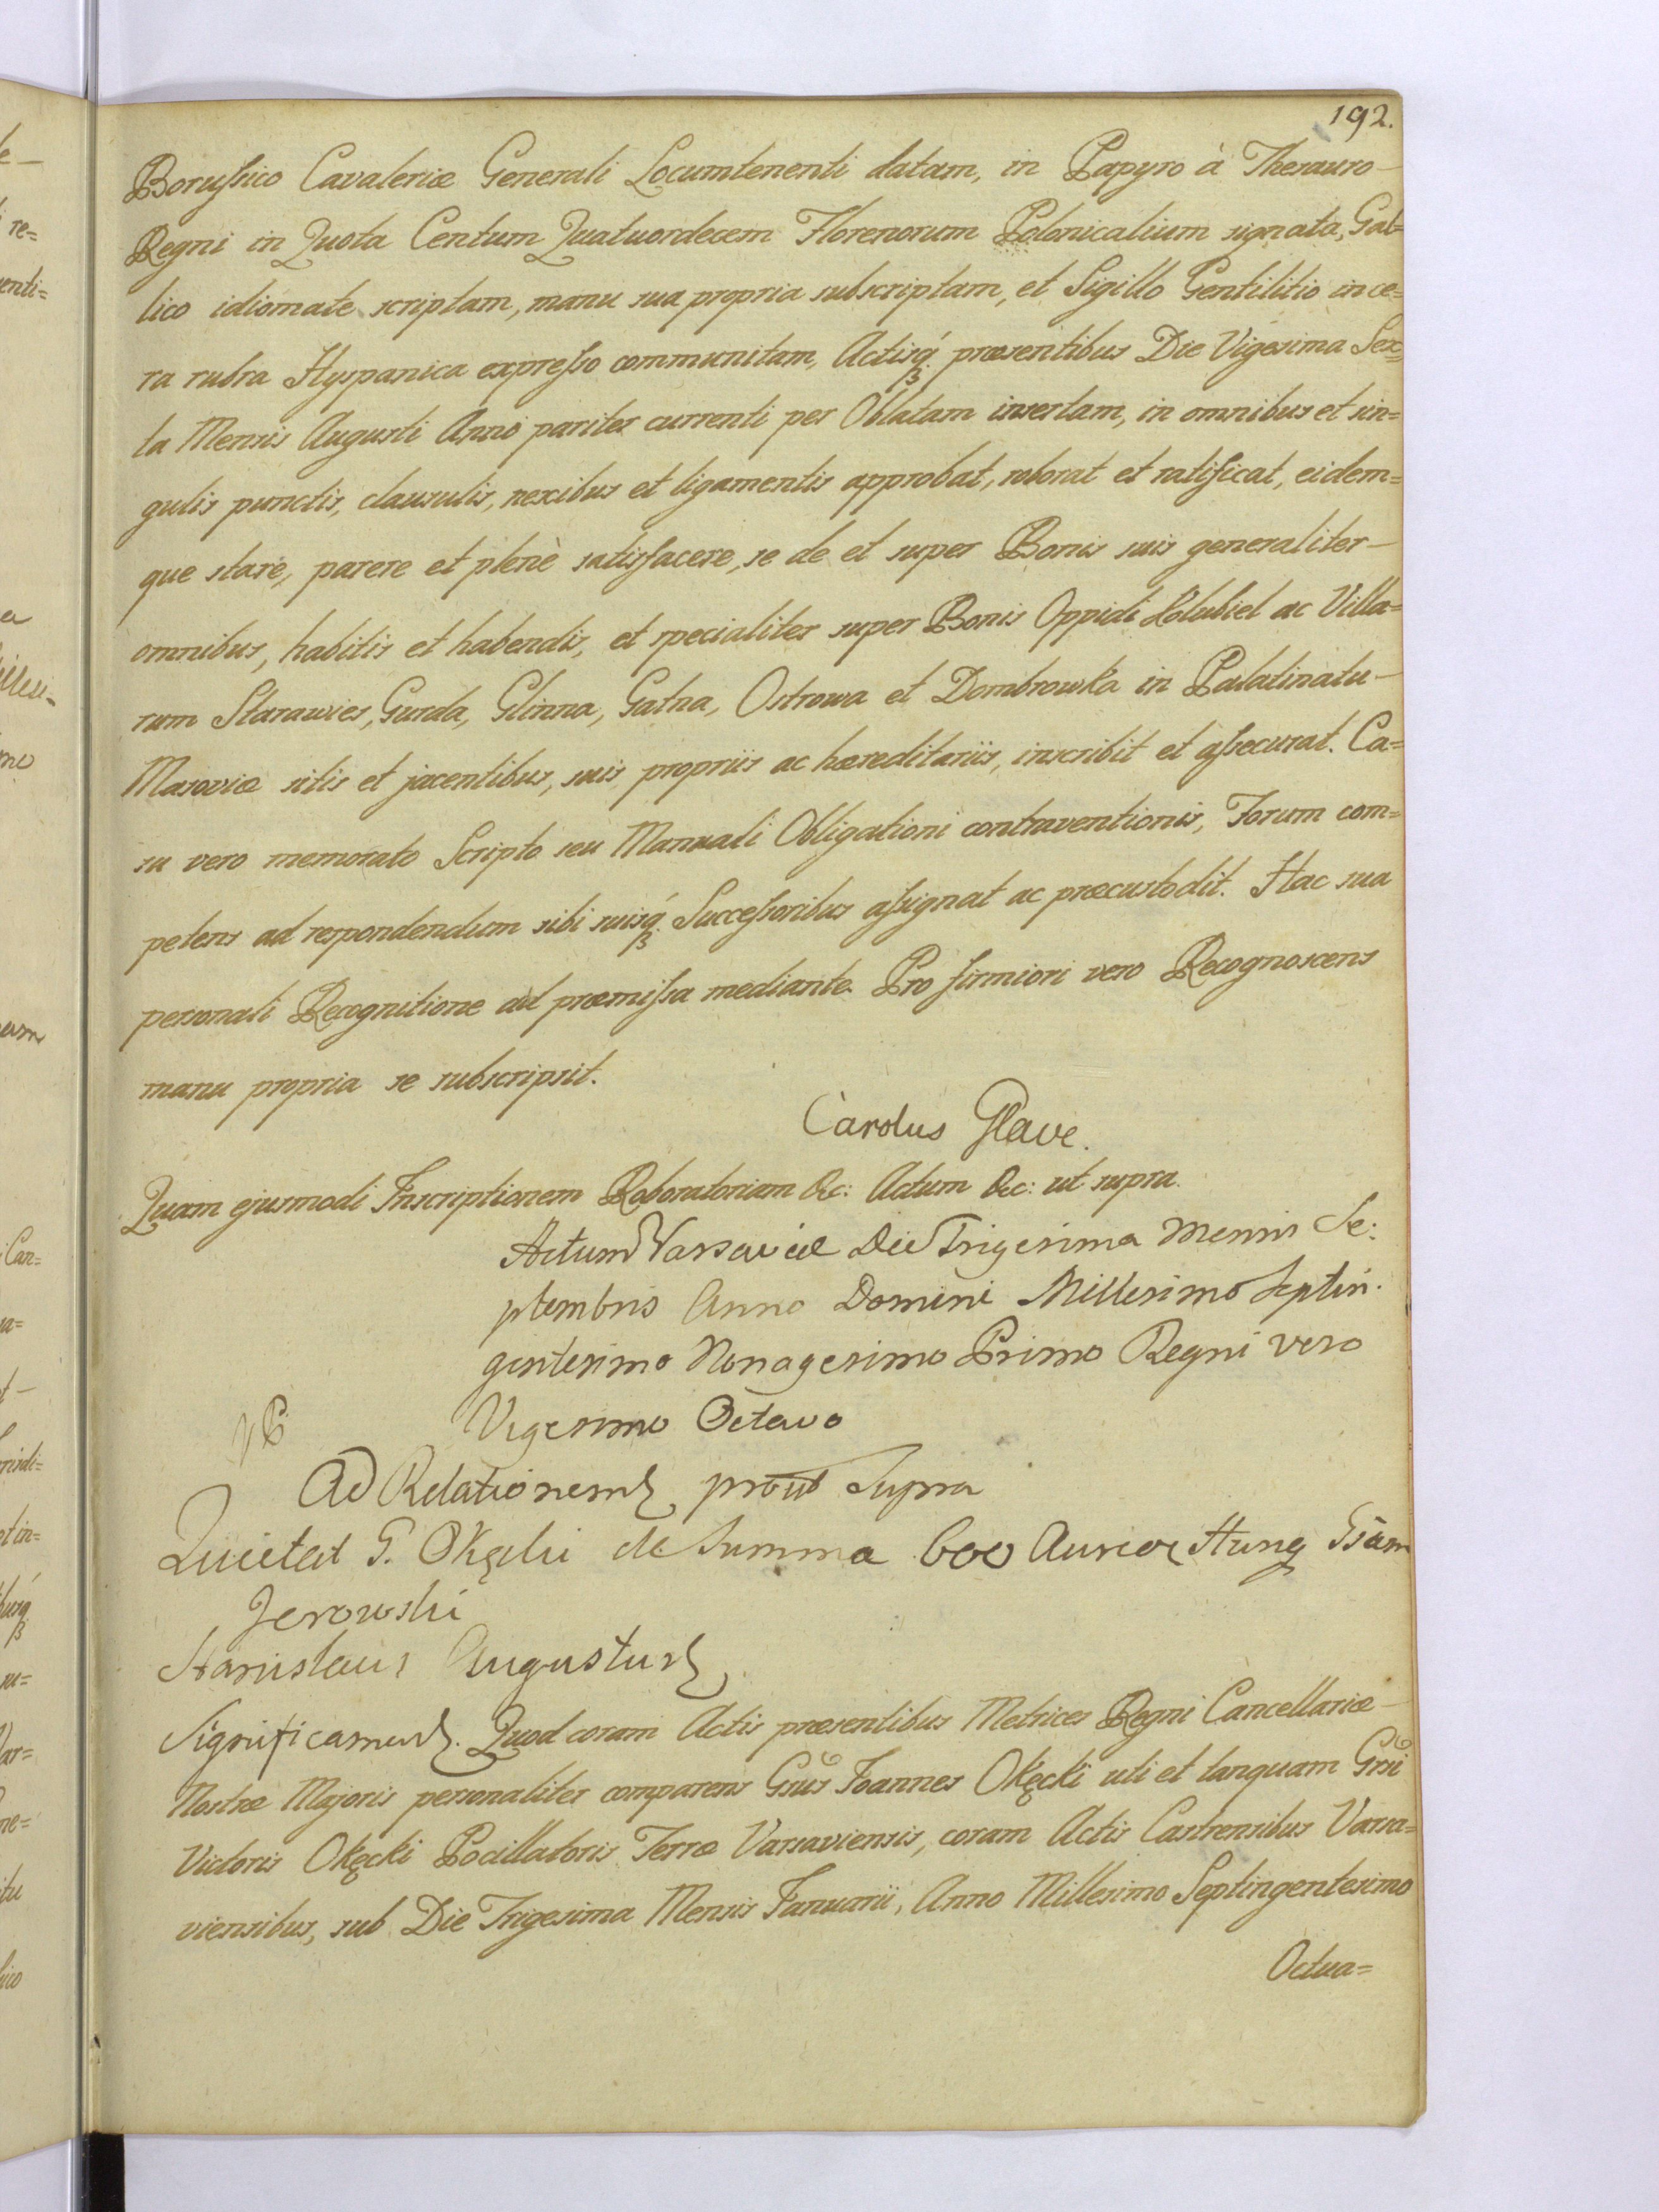 192.
Borussico Cavaleriæ Generali Locumtenenti datam, in Papyro à Thesauro-
Regni in Quota Centum Quatuordecem Florenorum Polonicalium signata, Gal=
lico idiomate scriptam, manu sua propria subscriptam, et Sigillo Gentilitio in ce=
ra rubra Hyspanica expresso communitam, Actisq́. præsentibus Die Vigesima Sex=
ta Mensis Augusti Anno pariter currenti per Oblatam insertam, in omnibus et sin=
gulis punctis, clausulis, nexibus et ligamentis approbat, roborat et ratificat, eidem=
que stare, parere et plenè satisfacere, se de et super Bonis suis generaliter-
omnibus, habitis et habendis, et specialiter super Bonis Oppidi Kolubiel ac Villa=
rum Starawies, Gurda, Glinna, Gatna, Ostrowa et Dombrowka in Palatinatu-
Masoviæ sitis et jacentibus, suis propriis ac hæreditariis, inscribit et assecurat. Ca=
su vero memorato Scripto seu Manuali Obligationi contraventionis, Forum com=
petens ad respondendum sibi suisq́. Successoribus assignat ac præcustodit. Hac sua
personali Recognitione ad præmissa mediante. Pro firmiori vero Recognoscens
manu propria se subscripsit.
Carolus Glave.
Quam ejusmodi Inscriptionem Roboratoriam &c: Actum &c: ut supra.
Actum Varsaviæ Die Trigesima Mensis Se:
ptembris Anno Domini Millesimo Septin.
gentesimo Nonagesimo Primo Regni vero
Vigesimo Octavo
Ad Relationem prout Supra
Quietat G. Okęcki de Summa 600 Aureor Hung Gsam
Jerowski
Stanislaus Augustus
Significamus. Quod coram Actis præsentibus Metrices Regni Cancellariæ-
Nostræ Majoris personaliter comparens Gsus Joannes Okęcki uti et tanquam Gsi
Victoris Okęcki Pocillatoris Terræ Varsaviensis, coram Actis Castrensibus Varsa=
viensibus, sub Die Trigesima Mensis Januarii, Anno Millesimo Septingentesimo
Octua=